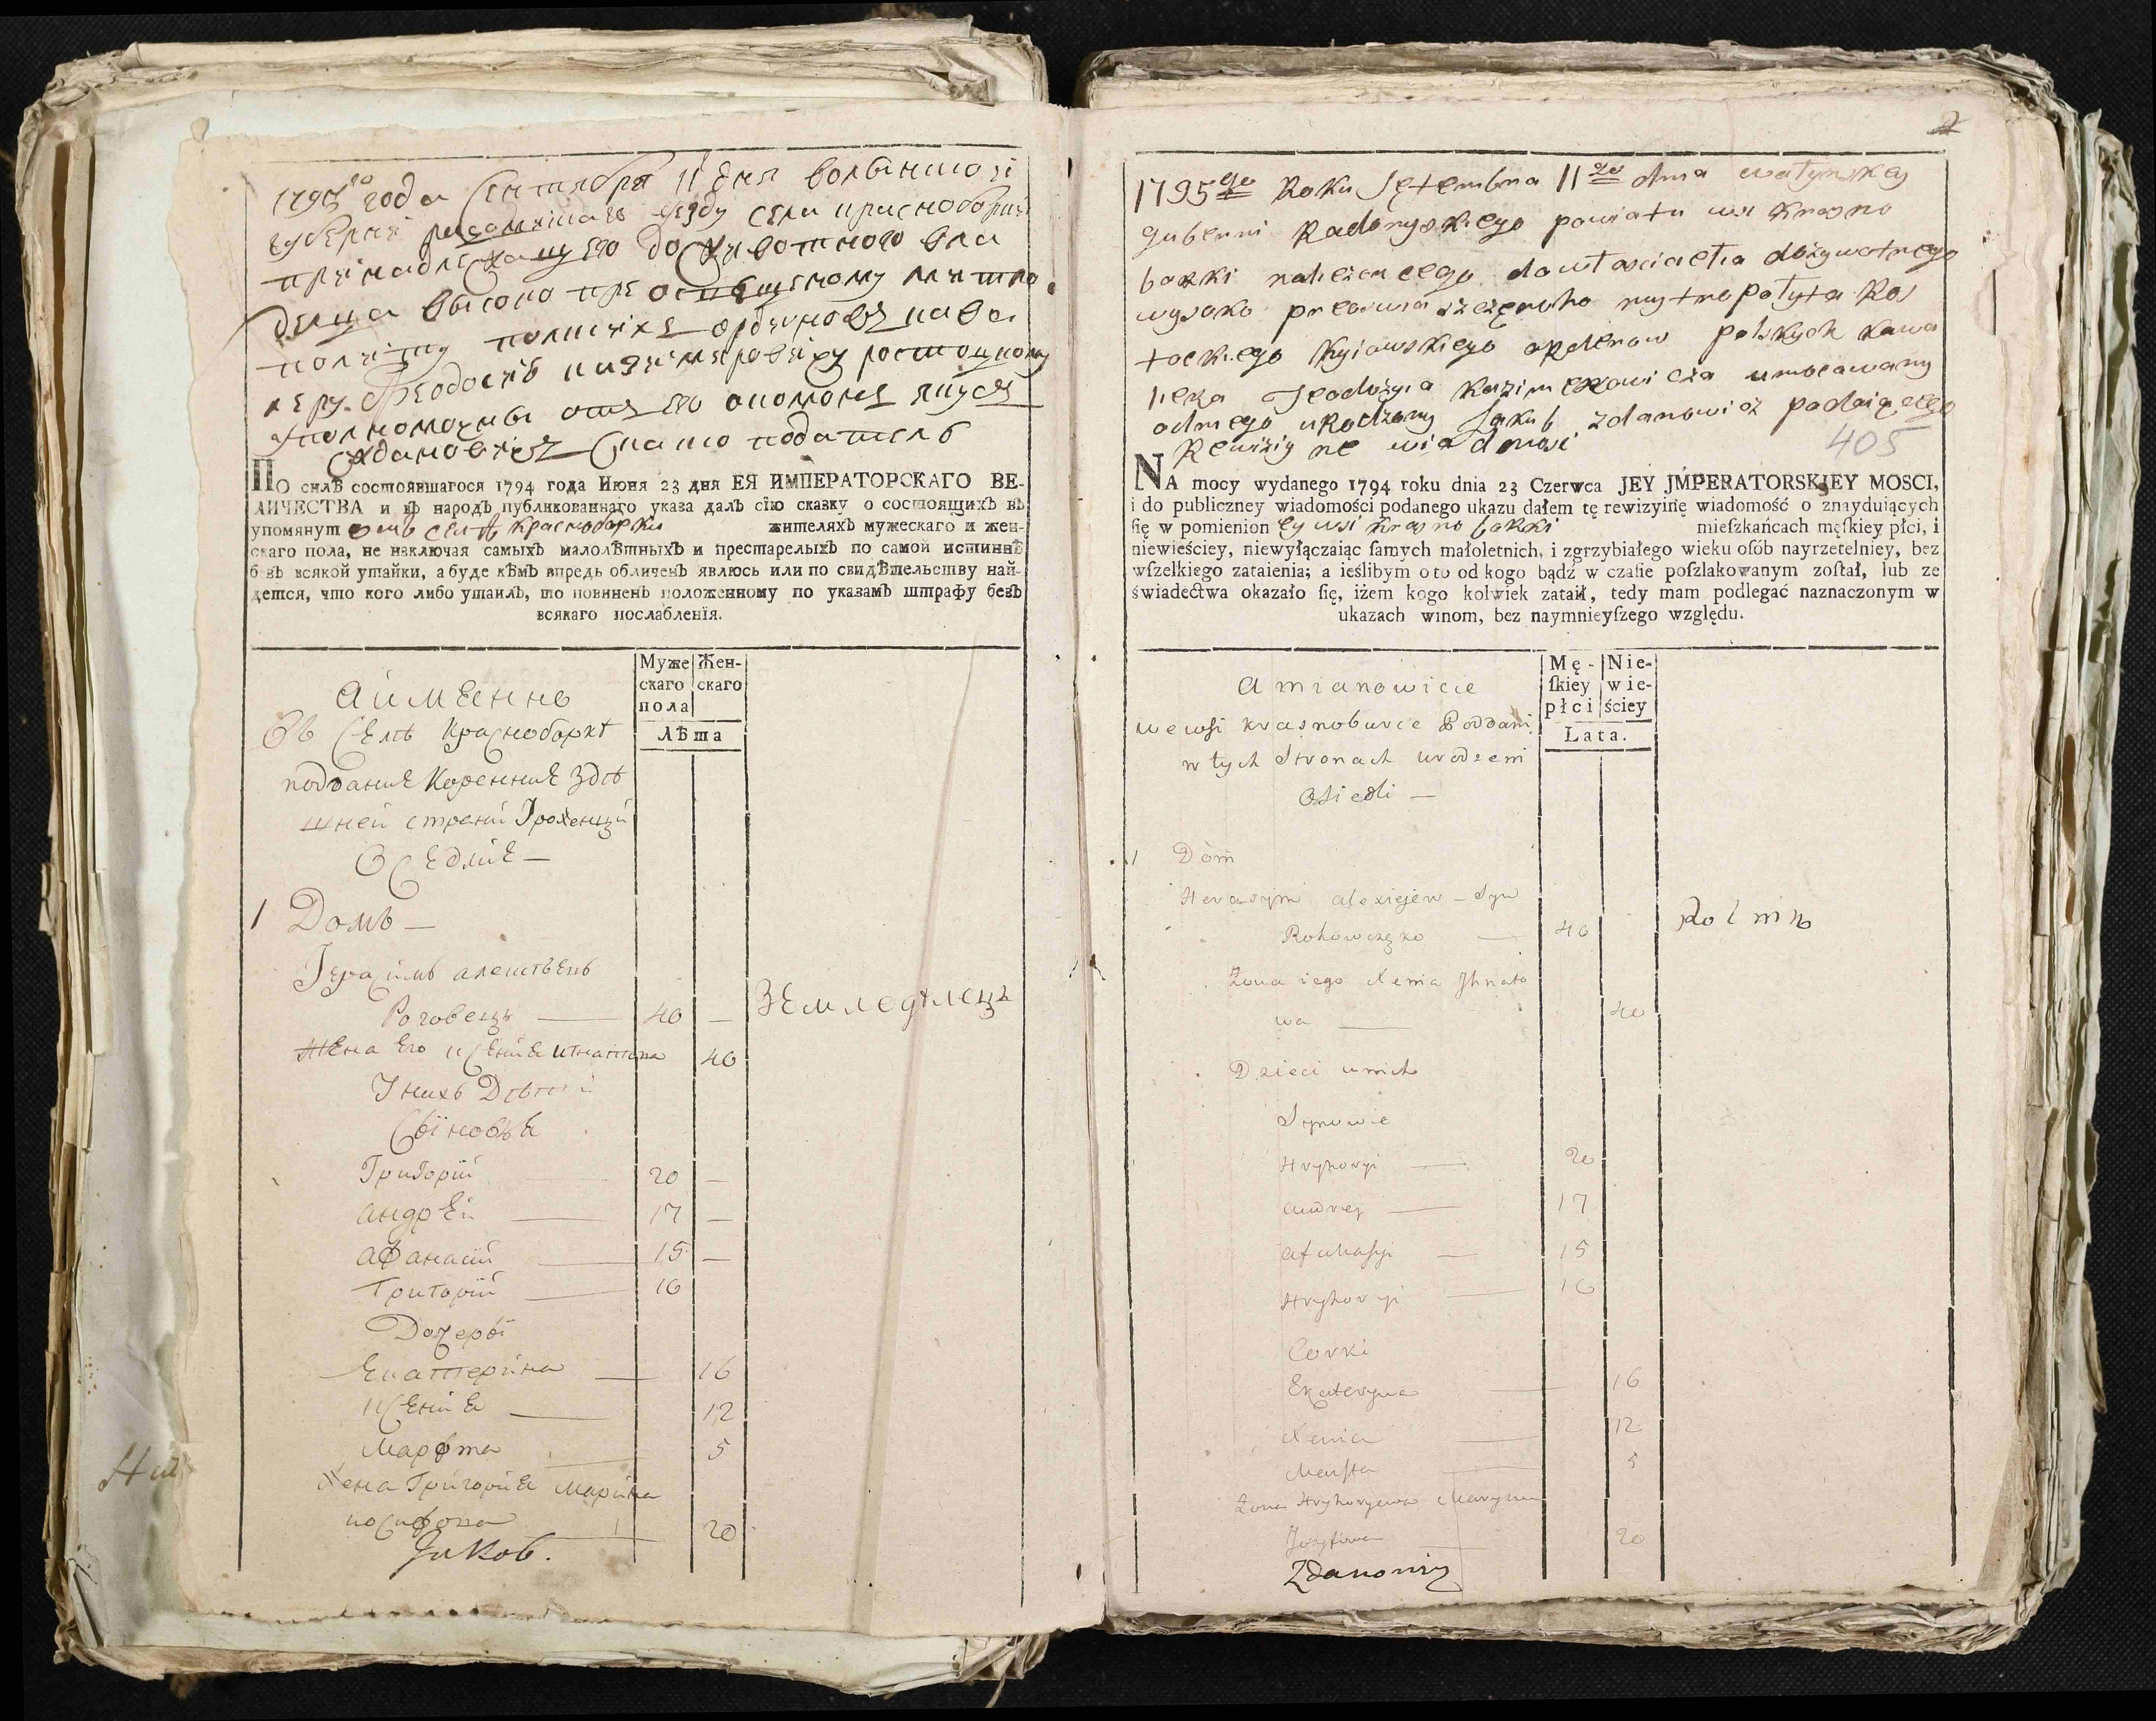 1795го года Сентября 11 дня волынской
губерній радомишлскаго уезду села краснобор
принадлежащего доживотного вла
делца высоко преосвещеному митро
политу
полских ордиров кава
леру Феодосію ростоцкому
уполномочный от его економ якуб
ждановичъ сказко податель
ПО силѢ состоявшагося 1794 года Июня 23 дня ЕЯ ИМПЕРАТОРСКАГО ВЕ-
ЛИЧЕСТВА и въ народъ публикованнаго указа далъ сїю сказку о состоящихъ въ
упомянутомъ селѣ краснобарки жителяхъ мужескаго и жен-
скаго пола, не изключая самыхъ малолѣтныхъ и престарелыхъ по самой истиннѣ
безъ всякой утайки, а буде кѣмъ впредь обличенъ явлюсь или по свидѣтельству най-
дется, что кого либо утаилъ, то повиненъ положенному по указамъ штрафу безъ
всякаго послабленїя.
Муже
скаго
пола
Жен-
скаго
Лѣта
а имЕнно
Въ СЕлѣ Краснобаркѣ
поддание Коренние Здѣ
шней страни Урожений
ОсЕдліЕ —
1 Домъ —
Герасимъ алексѣевъ
Роговецъ — 40 — Земледѣлецъ
Жена Его ксЕния игнатова 40
У нихъ Дѣтей
Сыновья
Григорїй — 20 —
андрЕй — 17 —
афанасїй — 15 —
Григорїй — 10
Дочеры
Екатерина — 16
ксЕния — 12
Марфта — 5
Жена Григорїя Марина
иосифова — 20
Jakob.
2
1795go Roku Septembra 11go dnia wołynskey
gubernii Radomyskiego powiatu wsi Krasno
borki należącego do właściciela dożywotnego
wysoko preoswiaszczęnoho mytropolyta Ros
tockiego Kyiowskiego orderow polskych kawa
lera Teodozyia Kazimierowicza umocowany
od niego urodzony Jakub zdanowicz podaiącego
Rewizyine wiadmosi
405
NA mocy wydanego 1794 roku dnia 23 Czerwca JEY JMPERATORSKIEY MOSCI,
i do publiczney wiadomości podanego ukazu dałem tę rewizyinę wiadomość o znayduiących
ſię w pomienioney wsi krasnoborki mieſzkańcach męſkiey płci, i
niewieściey, niewyłączaiąc ſamych małoletnich, i zgrzybiałego wieku oſób nayrzetelniey, bez
wſzelkiego zataienia; a ieślibym o to od kogo bądź w czaſie poſzlakowanym zoſtał, lub ze
świadectwa okazało ſię, iżem kogo kolwiek zataił, tedy mam podlegać naznaczonym w
ukazach winom, bez naymnieyſzego względu.
Mę-
ſkiey
płci
Nie-
wie-
ściey
Lata.
a mianowicie
we wsi krasnoburce Poddani
w tych Stronach urodzeni
Osiedli —
1 Dom
Herasym alexiejew — Syn
Rohowczęko — 40 Rolnik
Zona iego Xenia Jhnato
wa — 40
Dzieci u nich
Synowie
Hryhoryi — 20
andrey — 17
afanasyi — 15
Hryhoryi — 10
Corki
Ekateryna — 16
Xenia — 12
Marfta — 5
Zona Hryhoryewa Maryna
Jozyfowa — 20
Zdanowicz